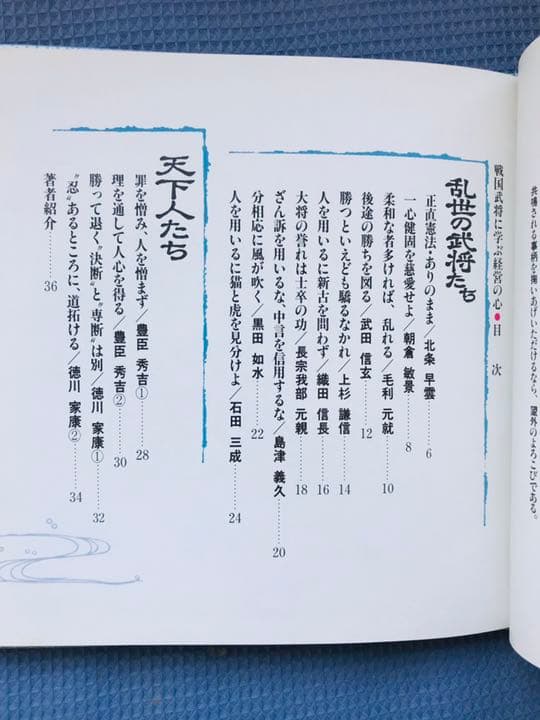 共鳴される事柄を拾いあげいただけるなら、望外のよろこびである。
戦国武将に学ぶ経営の心●目 次
乱世の武将たち
正直憲法・ありのまま/北条 早雲……6
一心健固を慈愛せよ/朝倉 敏景……8
柔和な者多ければ、乱れる/毛利 元就……10
後途の勝ちを図る/武田 信玄……12
勝つといえども驕るなかれ/上杉 謙信……14
人を用いるに新古を問わず/織田 信長……16
大将の誉れは士卒の功/長宗我部 元親……18
ざん訴を用いるな、中言を信用するな/島津 義久……20
分相応に風が吹く/黒田 如水……22
人を用いるに猫と虎を見分けよ/石田 三成……24
天下人たち
罪を憎み、人を憎まず/豊臣 秀吉①……28
理を通して人心を得る/豊臣 秀吉②……30
勝って退く〝決断〟と〝専断〟は別/徳川 家康①……32
〝忍〟あるところに、道拓ける/徳川 家康②……34
著者紹介……36